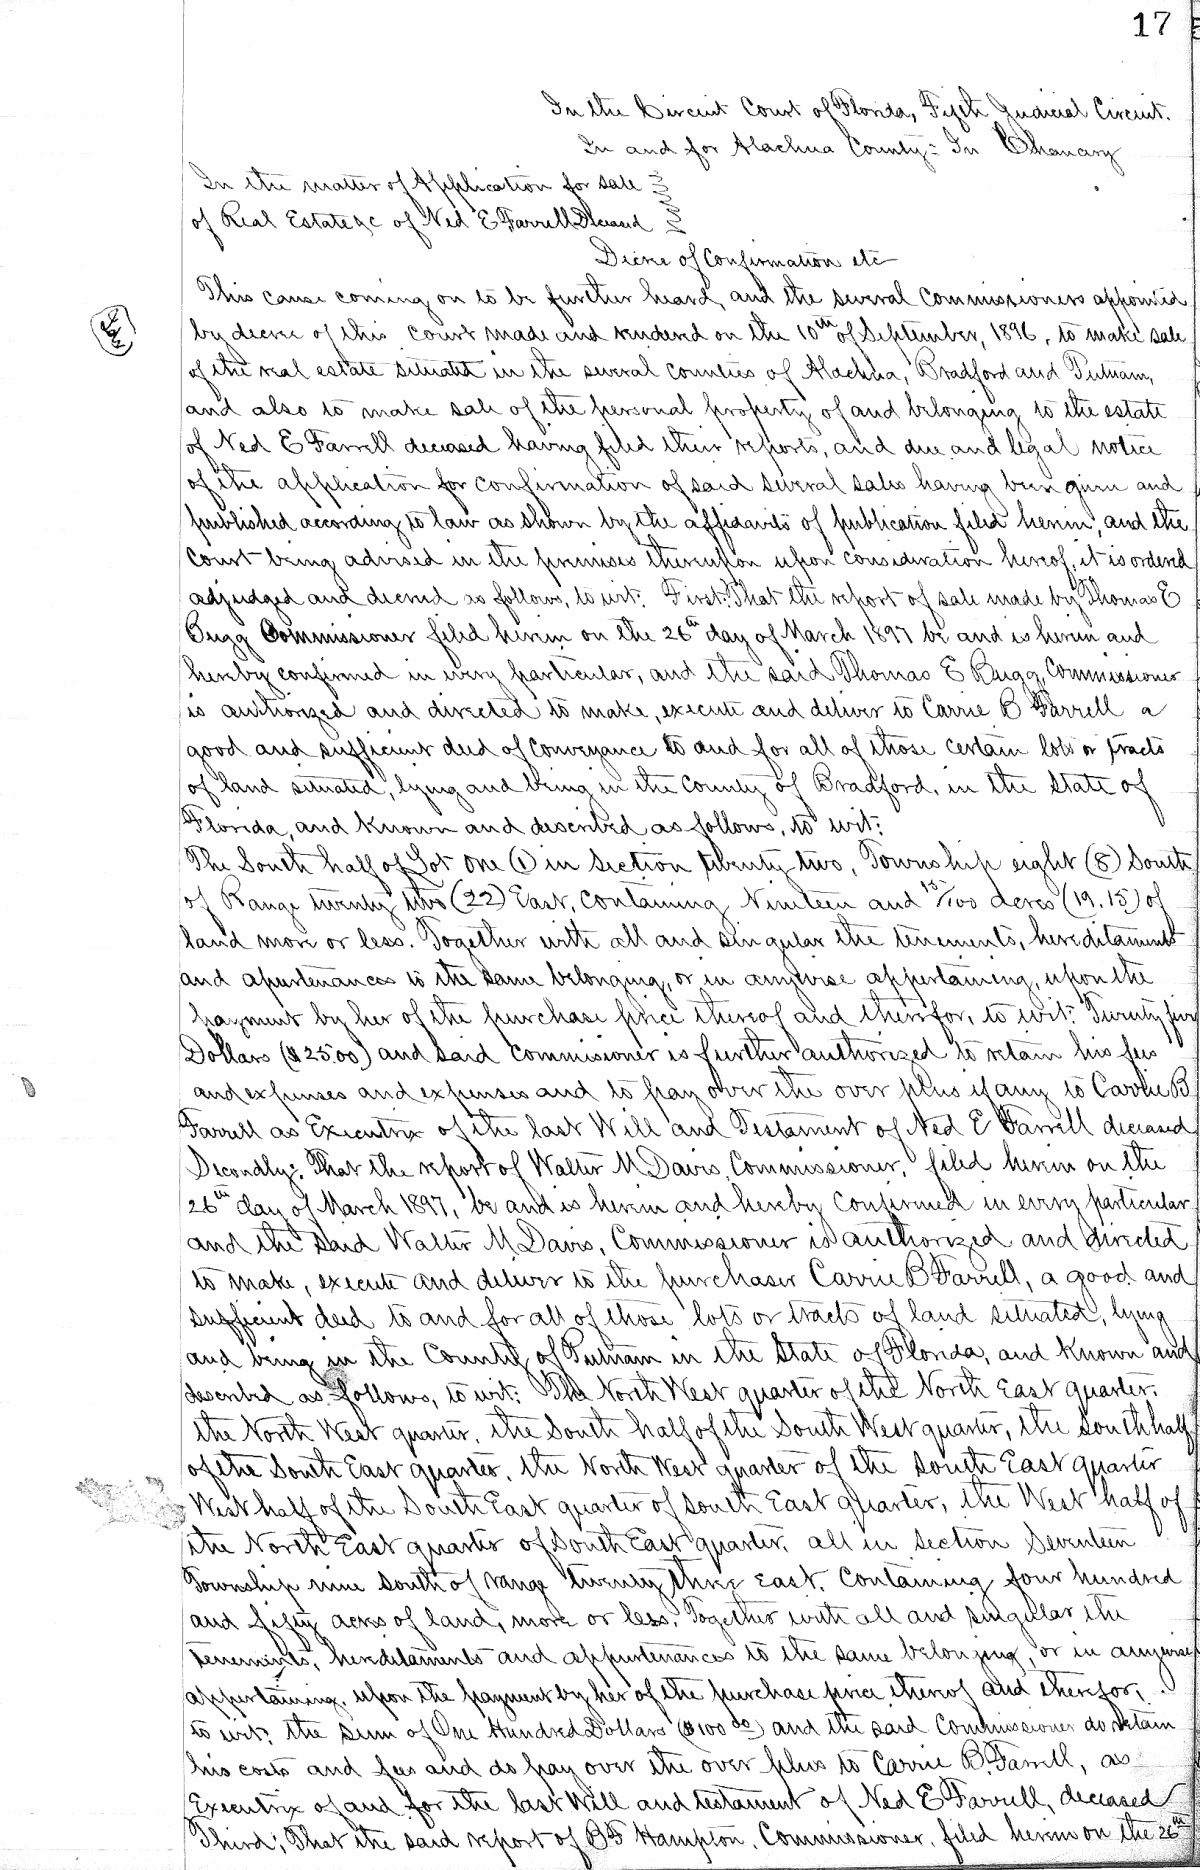 17
In the Circuit Court of Florida, Fifth Judicial Circuit.
In and for Alachua County: In Chancery
In the matter of Application for sale
of Real Estate &c of Ned E Farrell Deceased
Decree of Confirmation etc
This cause coming on to be further heard, and the several Commissioners appointed
by decree of this Court made and rendered on the 10th of September, 1896, to make sale
of the real estate situated in the several counties of Alachua, Bradford and Putnam,
and also to make sale of the personal property of and belonging to the estate
of Ned E Farrell deceased having filed their reports, and due and legal notice
of the application for confirmation of said several sales having been given and
published according to law as shown by the affidavits of publication filed herein, and the
Court being advised in the premises thereupon upon consideration hereof, it is ordered
adjudged and decreed as follows, to wit: First: That the report of sale made by Thomas E
Bugg Commissioner filed herein on the 26th day of March 1897 be and is herein and
hereby confirmed in every particular, and the said Thomas E Bugg, Commissioner
is authorized and directed to make, execute and deliver to Carrie B Farrell a
good and sufficient deed of conveyance to and for all of those certain lots or tracts
of land situated, lying and being in the County of Bradford, in the State of
Florida, and known and described as follows, to wit:
The South half of Lot one (1) in Section twenty two, Township eight (8) South
of Range twenty two (22) East, containing Nineteen and 15/100 acres (19.15) of
land more or less. Together with all and singular the tenements, hereditaments
and apurtenances to the same belonging, or in anywise appertaining, upon the
payment by her of the purchase price thereof and therefor, to wit: Twenty five
Dollars ($25.00) and said Commissioner is further authorized to retain his fees
and expenses and expenses and to pay over the over plus if any to Carrie B
Farrell as Executrix of the last Will and Testament of Ned E Farrell deceased
Secondly: That the report of Walter M Davis, Commissioner, filed herein on the
26th day of March 1897, be and is herein and hereby Confirmed in every particular
and the said Walter M. Davis, Commissioner is authorized and directed
to make, execute and deliver to the purchaser Carrie B Farrell, a good and
sufficient deed to and for all of those lots or tracts of land situated, lying
and being in the County of Putnam in the State of Florida, and known and
described as follows, to wit: The North West quarter of the North East quarter,
the North West quarter, the South half of the South West quarter, the south half
of the South East quarter, the North West quarter of the South East quarter
West half of the South East quarter of south East quarter, the West half of
the North East quarter of South East quarter, all in section Seventeen
Township nine south of range twenty three east, containing four hundred
and fifty acres of land, more or less, Together with all and singular the
tenements, hereditaments and appurtenances to the same belonging, or in anywise
appertaining, upon the payment by her of the purchase price thereof and therefor,
to wit: the sum of One Hundred Dollars ($100 00) and the said Commissioner do retain
his costs and fees and do pay over the over plus to Carrie B. Farrell, as
Executrix of and for the last Will and testament of Ned E Farrell, deceased
Third; That the said report of B F Hampton, Commissioner, filed herein on the 26th